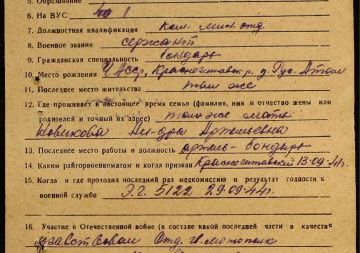 5. Образование
6. На ВУС № 1
7. Должностная квалификация ком. мин. отд.
8. Военное звание сержант
9. Гражданская специальность бондарь
10. Место рождения ЧАССР, Красночетайск р. д. Рус. Атай
11. Последнее место жительства там же
12. Где проживает в настоящее время семья (фамилия, имя и отчество жены или
родителей и точный их адрес) там же мать
Новикова
13. Последнее место работы и должность бондарь
14. Каким райгорвоенкоматом и когда призван Красночетайский 13-09-41г.
15. Когда и где проходил последний раз медкомиссию и результат годности к
военной службе Э.Г. 5122 29.09.44г.
16. Участие в Отечественной войне (в составе какой последней части в качестве
участвовал Отд. гв.